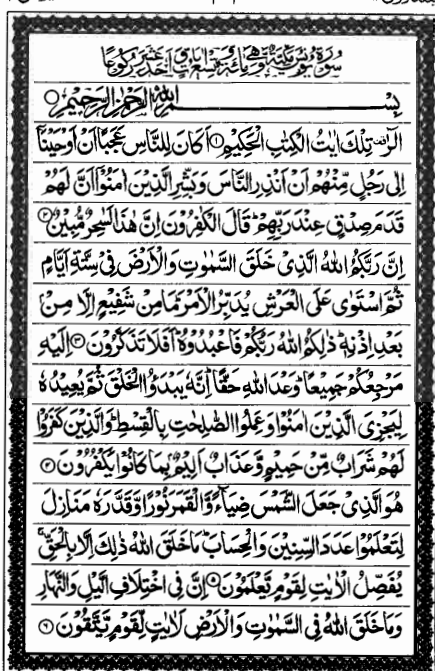 سُوْرَةُ يُوْنُسَ مَكِّيَّةٌ وَّهِيَ مِائَةٌ وَّتِسْعُ اٰيَاتٍ وَّاَحَدَ عَشَرَ رُكُوْعًا
بِسْمِ اللّٰهِ الرَّحْمٰنِ الرَّحِيْمِ
الٓرٰ تِلْكَ اٰيٰتُ الْكِتٰبِ الْحَكِيْمِ ۝۱ اَكَانَ لِلنَّاسِ عَجَبًا اَنْ اَوْحَيْنَاۤ
اِلٰى رَجُلٍ مِّنْهُمْ اَنْ اَنْذِرِ النَّاسَ وَبَشِّرِ الَّذِيْنَ اٰمَنُوْۤا اَنَّ لَهُمْ
قَدَمَ صِدْقٍ عِنْدَ رَبِّهِمْ ؔ قَالَ الْكٰفِرُوْنَ اِنَّ هٰذَا لَسٰحِرٌ مُّبِيْنٌ ۝۲
اِنَّ رَبَّكُمُ اللّٰهُ الَّذِيْ خَلَقَ السَّمٰوٰتِ وَالْاَرْضَ فِيْ سِتَّةِ اَيَّامٍ
ثُمَّ اسْتَوٰى عَلَى الْعَرْشِ يُدَبِّرُ الْاَمْرَ ؕ مَا مِنْ شَفِيْعٍ اِلَّا مِنْۢ
بَعْدِ اِذْنِهٖ ؕ ذٰلِكُمُ اللّٰهُ رَبُّكُمْ فَاعْبُدُوْهُ ؕ اَفَلَا تَذَكَّرُوْنَ ۝۳ اِلَيْهِ
مَرْجِعُكُمْ جَمِيْعًا ؕ وَعْدَ اللّٰهِ حَقًّا ؕ اِنَّهٗ يَبْدَؤُا الْخَلْقَ ثُمَّ يُعِيْدُهٗ
لِيَجْزِيَ الَّذِيْنَ اٰمَنُوْا وَعَمِلُوا الصّٰلِحٰتِ بِالْقِسْطِ ؕ وَالَّذِيْنَ كَفَرُوْا
لَهُمْ شَرَابٌ مِّنْ حَمِيْمٍ وَّعَذَابٌ اَلِيْمٌۢ بِمَا كَانُوْا يَكْفُرُوْنَ ۝۴
هُوَ الَّذِيْ جَعَلَ الشَّمْسَ ضِيَآءً وَّالْقَمَرَ نُوْرًا وَّقَدَّرَهٗ مَنَازِلَ
لِتَعْلَمُوْا عَدَدَ السِّنِيْنَ وَالْحِسَابَ ؕ مَا خَلَقَ اللّٰهُ ذٰلِكَ اِلَّا بِالْحَقِّ ۚ
يُفَصِّلُ الْاٰيٰتِ لِقَوْمٍ يَّعْلَمُوْنَ ۝۵ اِنَّ فِي اخْتِلَافِ الَّيْلِ وَالنَّهَارِ
وَمَا خَلَقَ اللّٰهُ فِي السَّمٰوٰتِ وَالْاَرْضِ لَاٰيٰتٍ لِّقَوْمٍ يَّتَّقُوْنَ ۝۶